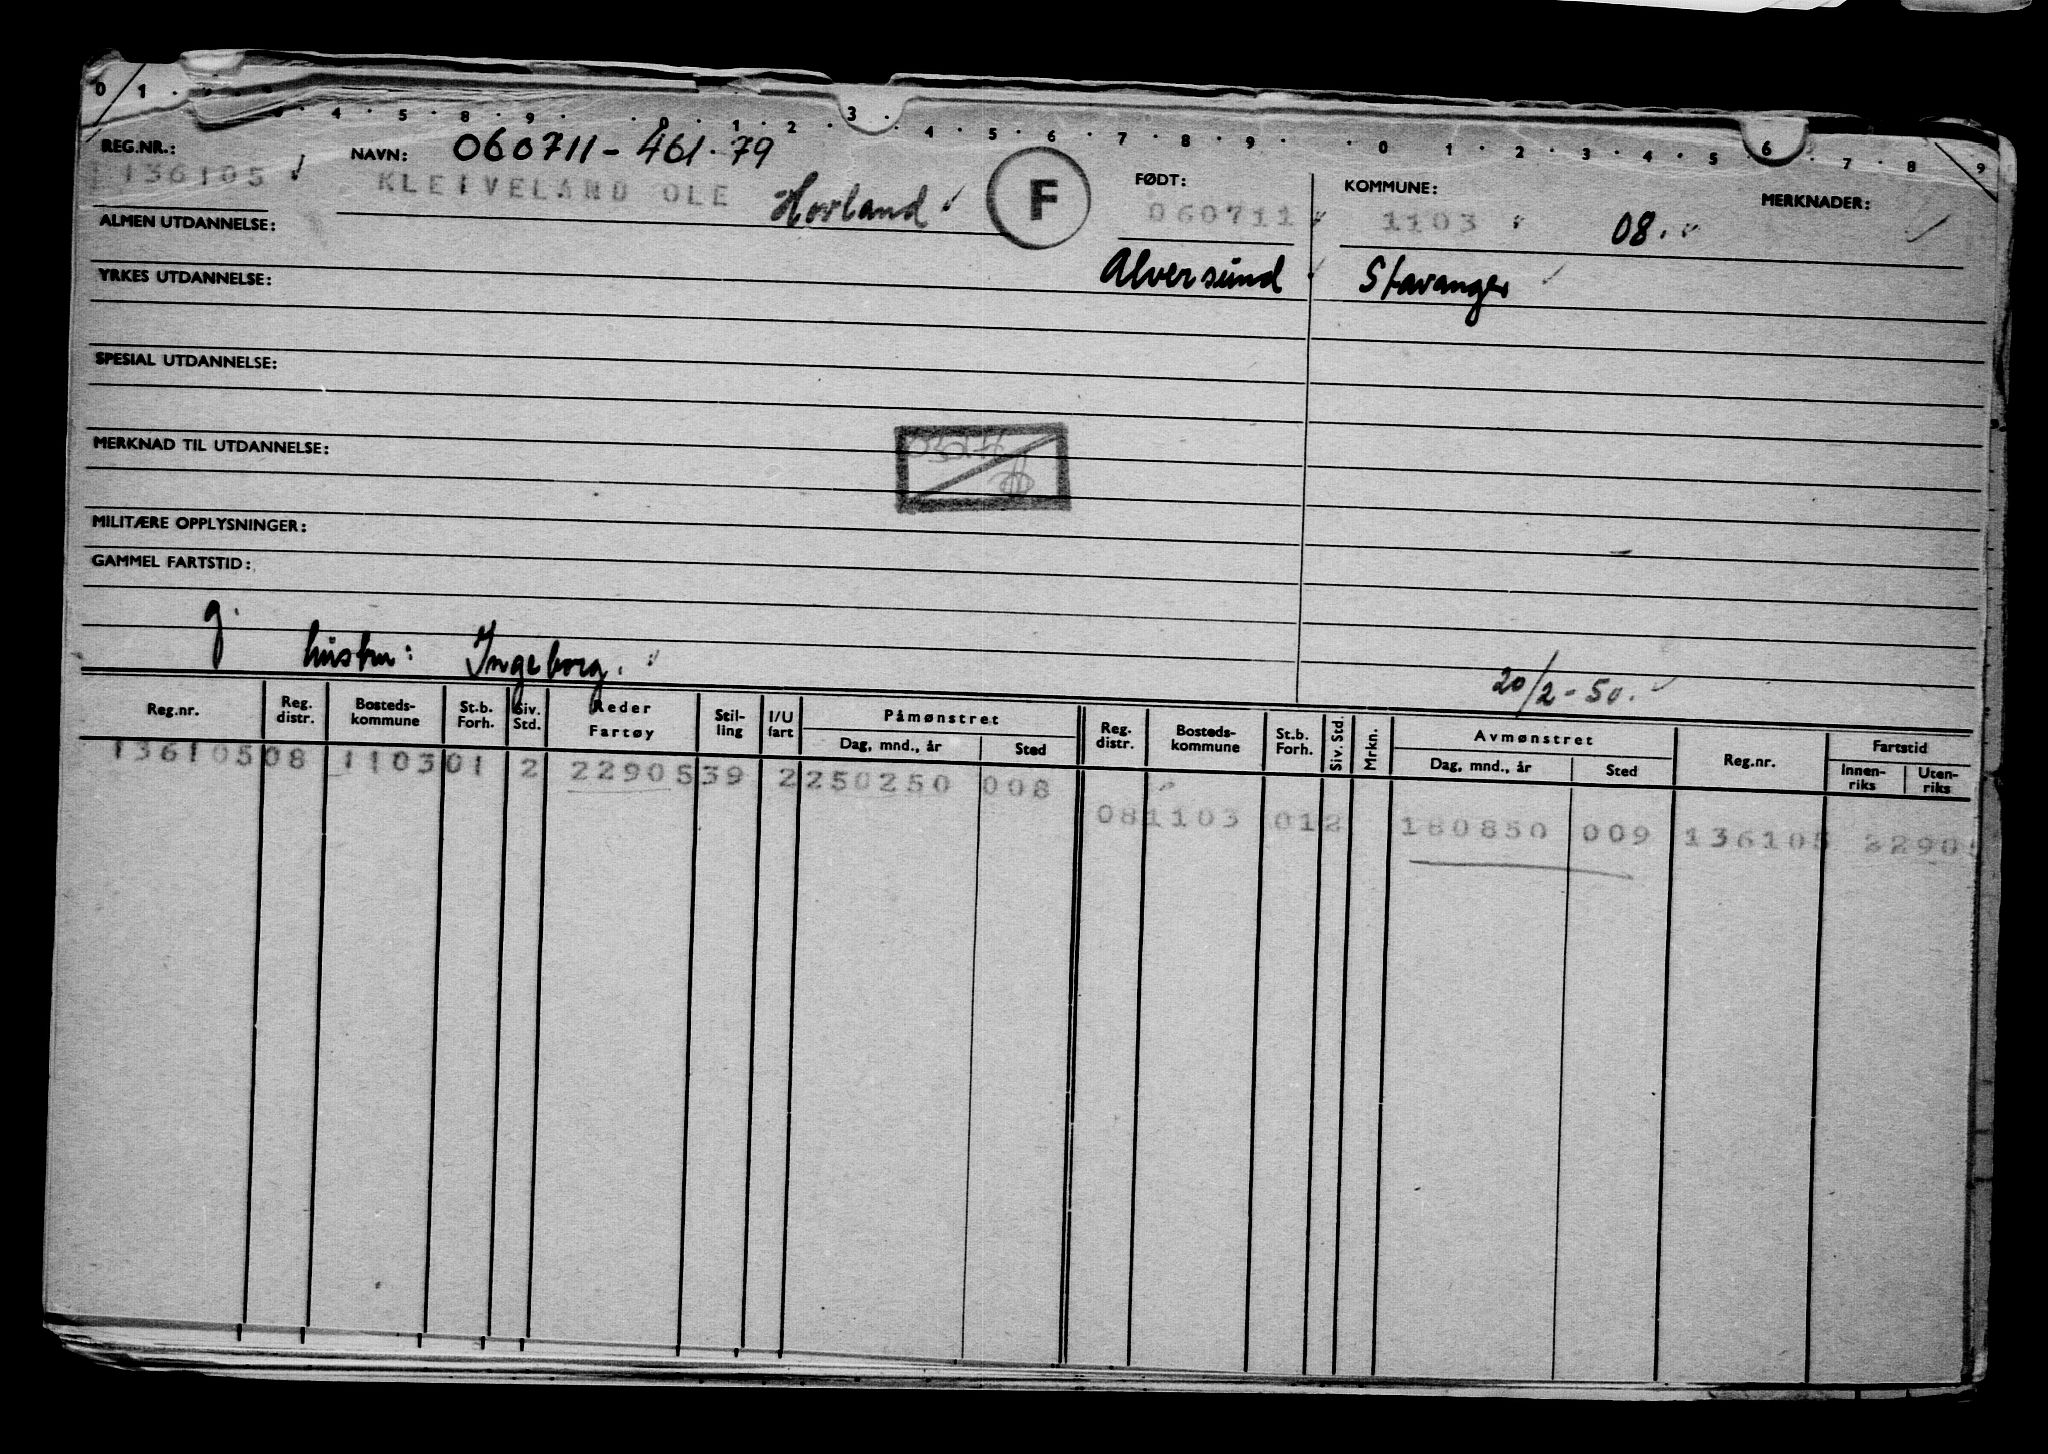 0 1 . 4 . 5 . 8 . 9 . . 0 . 1 . 2 . 3 . 4 . 5 . 6 . 7 . 8 . 9 . . 0 . 1 . 2 . 3 . 4 . 5 . 6 . 7 . 8 . 9
REG.NR.: NAVN: 060711-461.79 FØDT: KOMMUNE: MERKNADER:
136105 KLEIVELAND OLE Hovland F 060711 1103 08.
ALMEN UTDANNELSE:
Alversund Stavanger
YRKES UTDANNELSE:
SPESIAL UTDANNELSE:
MERKNAD TIL UTDANNELSE:
MILITÆRE OPPLYSNINGER:
GAMMEL FARTSTID:
g.
hustru: Ingeborg.
20/2-50.
Reg.nr. Reg. distr. Bosteds-kommune St.b. Forh. Siv. Std. Reder Fartøy Stil-ling I/U fart Påmønstret Dag, mnd., år Sted Reg. distr. Bosteds-kommune St.b. Forh. Siv. Std. Mrkn. Avmønstret Dag, mnd., år Sted Reg.nr. Fartstid Innen-riks Uten-riks
136105 08 1103 01 2 22905 39 2 250250 008
08 1103 01 2 180850 009 136105 22905